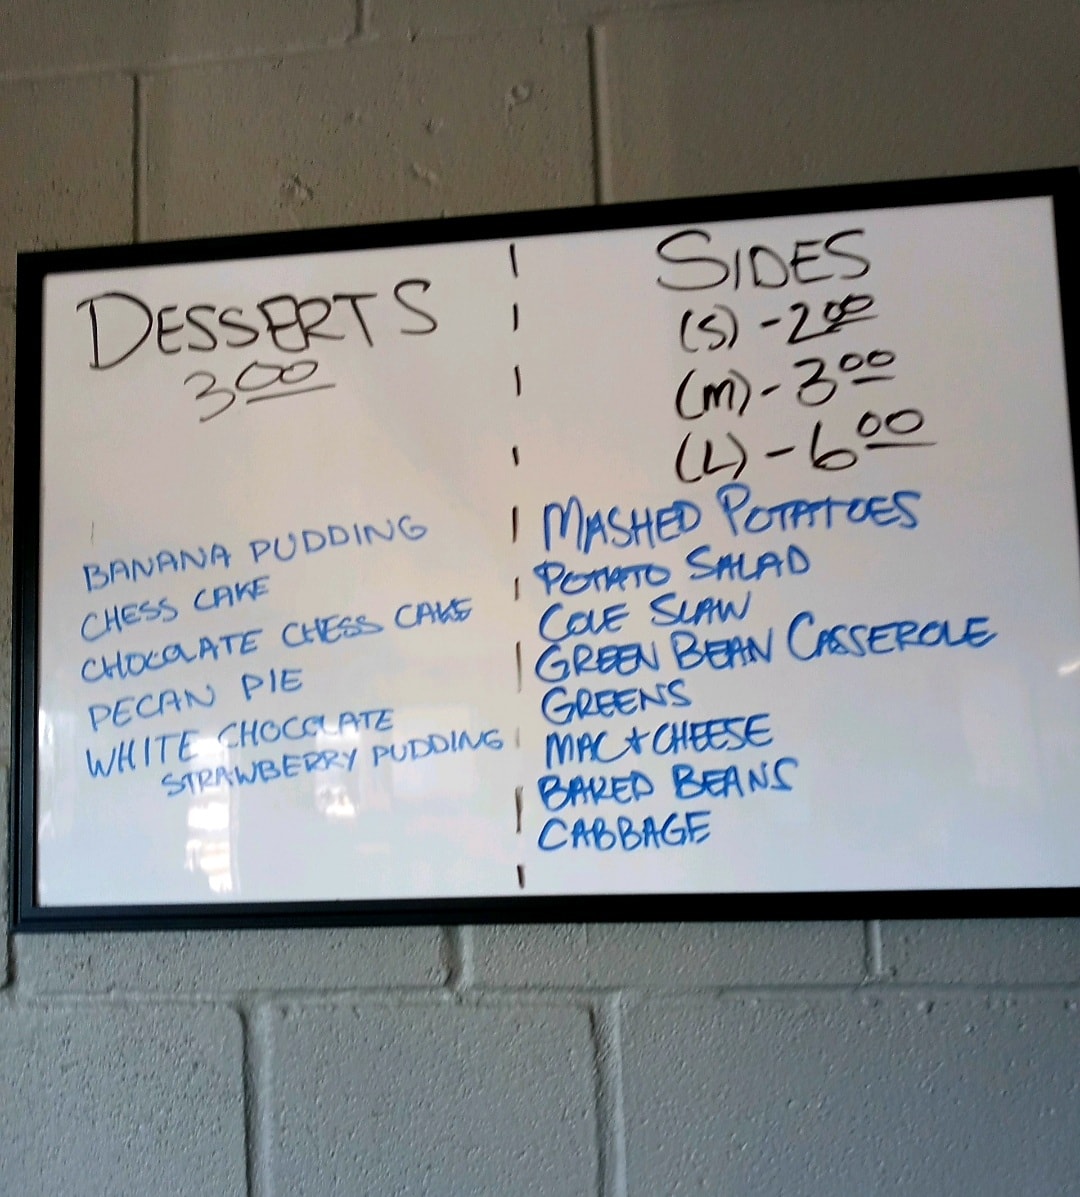 DESSERTS
3 00
BANANA PUDDING
CHESS CAKE
CHOCOLATE CHESS CAKE
PECAN PIE
WHITE CHOCOLATE
STRAWBERRY PUDDING
SIDES
(S) - 2 00
(M) - 3 00
(L) - 6 00
MASHED POTATOES
POTATO SALAD
COLE SLAW
GREEN BEAN CASSEROLE
GREENS
MAC & CHEESE
BAKED BEANS
CABBAGE